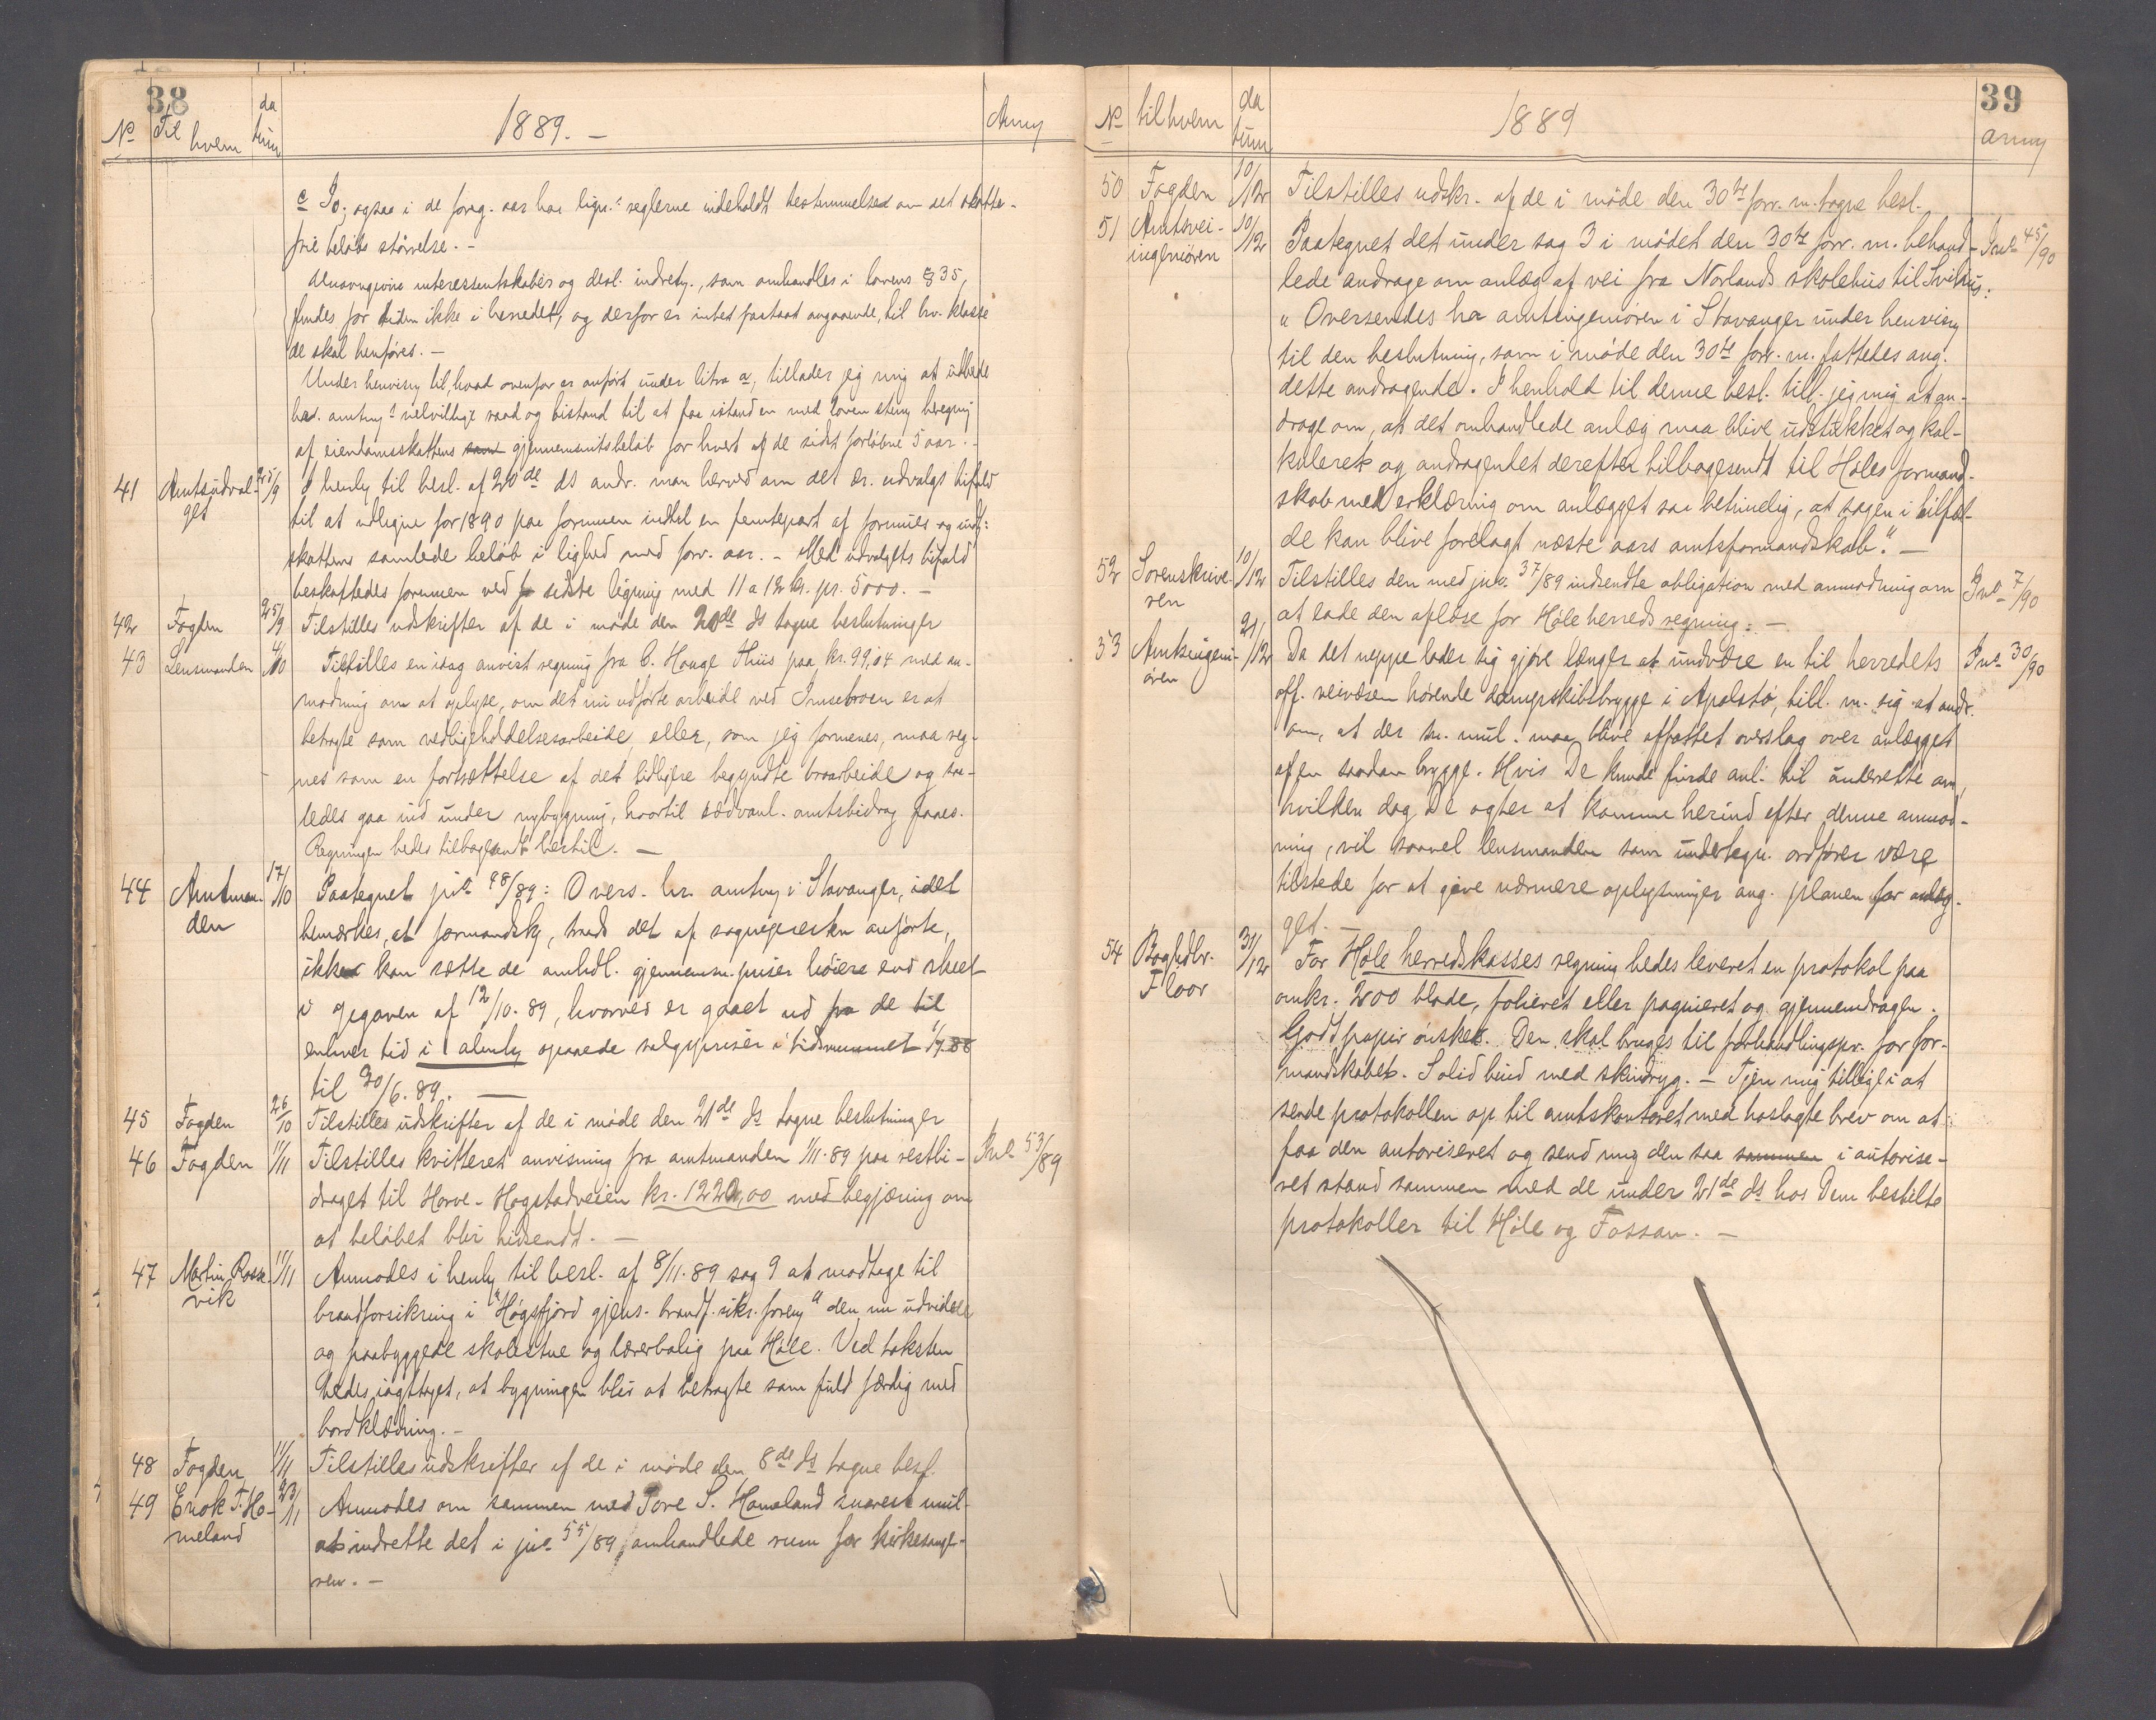 38
No Til hvem datum 1889. - Anm
c Jo; ogsaa i de foreg. aar har lign.s reglerne indeholdt bestemmelser om det skatte-
frie beløbs størrelse. -
Uansvgivne interessentskaber og desl. indretn., som omhandles i lovens § 35,
findes for tiden ikke i herredet, og derfor er intet fastsat angaaende, til hv. klasse
de skal henføres. -
Under henvisng til, hvad ovenfor er anført under litra a, tillader jeg mig at udbede
hr. amtm.s velvillige raad og bistand til at faa istand en med loven stemng beregng
af eiendomsskattens gjennemsnitsbeløb for hvert af de sidst forløbne 5 aar. -
41 Amtsudval-get 25/9 I henh. til besl. af 20de ds andr. man herved om det ær. udvalgs bifald
til at udligne for 1890 paa formuen indtil en femtepart af formues og indt:
skattens samlede beløb i lighed med forr. aar. - Med udvalgets bifald
beskattedes formuen ved sidste ligning med 11 a 12 kr. pr. 5000. -
42 Fogden 25/9 Tilstilles udskrifter af de i møde den 20de ds tagne beslutninger
43 Lensmanden 4/10 Tilstilles en idag anvist regning fra C. Hauge Thiis paa kr. 99,04 med an-
modning om at oplyse, om det nu udførte arbeide ved Imsebroen er at
betragte som vedligeholdelsesarbeide, eller, som jeg formener, maa reg-
nes som en fortsættelse af det tidligere begyndte broarbeide og saa-
ledes gaa ind under nybygning, hvortil sædvanl. amtsbidrag faaes.
Regningen bedes tilbagesendt hertil. -
44 Amtman-den 17/10 Paategnet jno 48/89: Overs. hr. amtm i Stavanger, idet
bemærkes, at formandsk, trods det af sogneprærten anførte,
ikke kan sætte de omhdl. gjennemsn. priser høiere end skeet
i opgaven af 12/10. 89, hvorved er gaaet ud fra de til
enhver tid i almh opnaaede salgspriser i tidsrummet 1/7 88
til 30/6. 89. -
45 Fogden 26/10 Tilstilles udskrifter af de i møde den 21de ds tagne beslutninger
46 Fogden 11/11 Tilstilles kvitteret anvisning fra amtmanden 1/11. 89 paa restbi- Jno 53/89
draget til Horve-Hogstadveien kr. 1220,00 med begjæring om
at beløbet blir hidsendt. -
47 Martin Rossa-vik 11/11 Anmodes i henh til besl. af 8/11. 89 sag 9 at modtage til
brandforsikring i "Høgsfjord gjens. brandf. sikr. foreng" den nu udvidede
og paabyggede skolestue og lærerbolig paa Høle. Ved taksten
bedes iagttaget, at bygningen blir at betragte som fuld færdig med
bordklædning. -
48 Fogden 11/11 Tilstilles udskrifter af de i møde den 8de ds tagne besl.
49 Enok T. Ho-meland 23/11 Anmodes om sammen med Tore S. Homeland snarest mul.
at indrette det i jno 55/89 omhandlede rum for kirkesange-
ren. -
39
No til hvem datum 1889 anm
50 Fogden 10/12 Tilstilles udskr. af de i møde den 30te forr. m. tagne besl.
51 Amtsvei-ingeniøren 10/12 Paategnet det under sag 3 i mødet den 30te forr. m. behand- Jno 45/90
lede andrage om anlæg af vei fra Norlands skolehus til Svihus:
"Oversendes hr amtsingeniøren i Stavanger under henvisng
til den beslutning, som i møde den 30te forr. m. fattedes ang.
dette andragende. I henhold til denne besl. till. jeg mig at an-
drage om, at det omhandlede anlæg maa blive udstukket og kal-
kuleret og andragendet derefter tilbagesendt til Høles formand-
skab med erklæring om anlægget saa betimelig, at sagen i tilfæl-
de kan blive forelagt næste aars amtsformandskab." -
52 Sorenskrive-ren 10/12 Tilstilles den med jno 37/89 indsendte obligation med anmodning om Jno 7/90
at lade den aflæse for Høle herreds regning: -
53 Amtsingeni-øren 21/12 Da det neppe lader sig gjøre længer at undvære en til herredets Jno 30/90
off. veivæsen hørende dampskibsbrygge i Apalstø, till. m. sig at andr.
om, at der sn. mul. maa blive affattet overslag over anlægget
af en saadan brygge. Hvis De kunde finde anl. til underrette om,
hvilken dag De agter at komme herind efter denne anmod-
ning, vil saavel lensmanden som undertegn. ordfører være
tilstede for at give nærmere oplysninger ang. planen for anlæg-
get. -
54 Boghdlr. Floor 31/12 For Høle herredskasses regning bedes leveret en protokol paa
omkr. 200 blade, folieret eller pagineret og gjennemdragen.
Godt papir ønskes. Den skal bruges til forhandlingspr. for for-
mandskabet. Solid bind med skindryg. - Tjen mig tillige i at
sende protokollen op til amtskontoret med hoslagte brev om at
faa den autoriseret og send mig den saa sammen i autorise-
ret stand sammen med de under 21de ds hos Dem bestilte
protokoller til Høle og Fossan. -